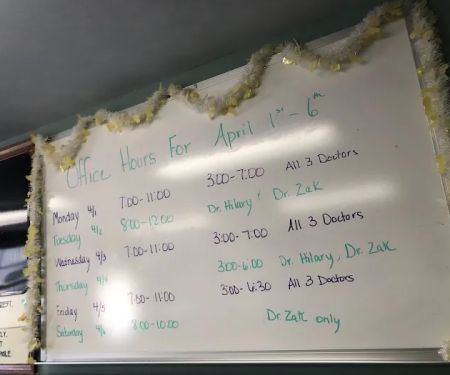 Office Hours For April 1st - 6th
Monday 4/1 7:00-11:00 3:00-7:00 All 3 Doctors
Tuesday 4/2 8:00-12:00 Dr. Hilary & Dr. Zak
Wednesday 4/3 7:00-11:00 3:00-7:00 All 3 Doctors
Thursday 4/4 3:00-6:00 Dr. Hilary, Dr. Zak
Friday 4/5 7:00-11:00 3:00-6:30 All 3 Doctors
Saturday 4/6 8:00-10:00 Dr. Zak only